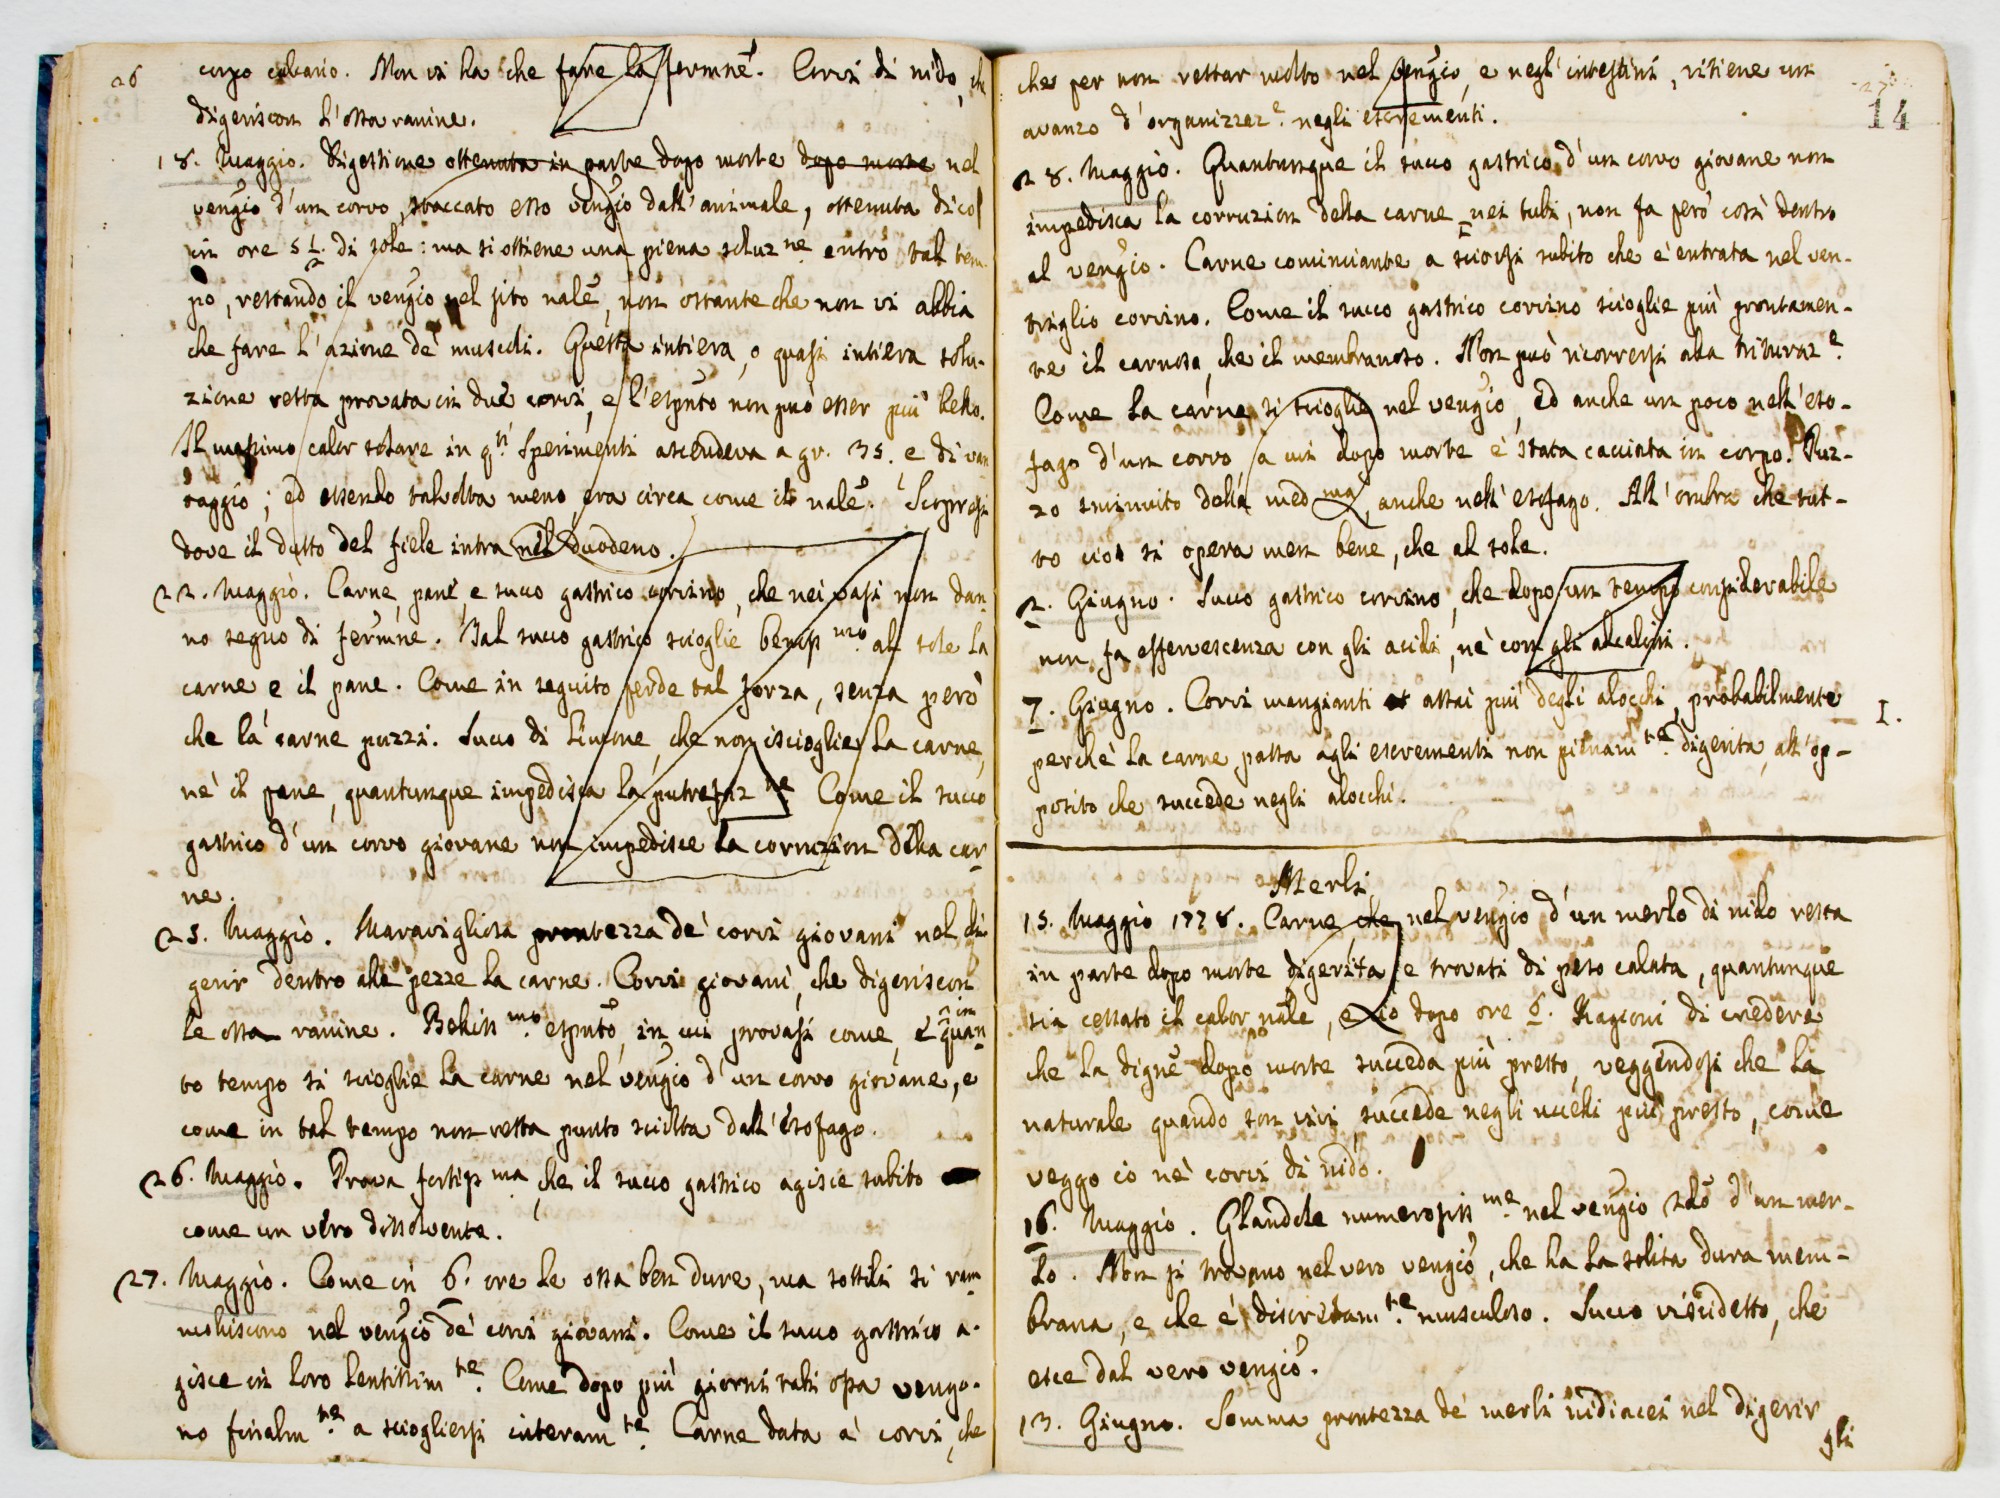 26
corpo calvario. Non vi ha che fare la fermne. Corvi di nido, che
digeriscon l'ossa ranine.
18. Maggio. Digestione ottenuta in parte dopo morte dopo morte nel
vengio d'un corvo, staccato esso vengio dall'animale, ottenuta dico
in ore 5 1/2 di sole: ma si ottiene una piena soluzne entro tal tem-
po, restando il vengio nel sito nale, non ostante che non vi abbia
che fare l'azione de' muscoli. Questa intiera, o quasi intiera solu-
zione resta provata in due corvi, e l'espnto non può esser più bello.
Il massimo calor solare in qti sperimenti ascendeva a gr. 35. e di van
taggio; ed essendo talvolta meno era circa come il nale. Scopresi
dove il dutto del fiele intra nel duodeno.
22. Maggio. Carne, pane, e succo gastrico corvino, che nei vasi non dan-
no segno di fermne. Tal succo gastrico scioglie benissmo al sole la
carne e il pane. Come in seguito perde tal forza, senza però
che la carne puzzi. Succo di limone, che non iscioglie la carne,
nè il pane, quantunque impedisca la putrefazne Come il succo
gastrico d'un corvo giovane non impedisce la corruzion della car-
ne.
25. Maggio. Maravigliosa prontezza de' corvi giovani nel di-
gerir dentro alle pezze la carne. Corvi giovani, che digeriscon
le ossa ranine. Bellissmo espnto, in cui provasi come, e in quan-
to tempo si scioglie la carne nel vengio d'un corvo giovane, e
come in tal tempo non resta punto sciolta dall'esofago.
26. Maggio. Prova fortissma, che il succo gastrico agisce subito
come un vero dissolvente.
27. Maggio. Come in 6. ore le ossa ben dure, ma sottili si ram-
molliscono nel vengio de' corvi giovani. Come il succo gastrico a-
gisce in loro lentissimte. Come dopo più giorni tali ossa vengo-
no finalmte a sciogliersi interamte. Carne data a' corvi, che
14
che per non restar molto nel vengio, e negl'intestini, ritiene un
avanzo d'organizzeze negli escrementi.
28. Maggio. Quantunque il succo gastrico d'un corvo giovane non
impedisca la corruzion della carne nei tubi, non fa però così dentro
al vengio. Carne cominciante a sciorsi subito che è entrata nel ven-
triglio corvino. Come il succo gastrico corvino scioglie più prontamen-
te il carnoso, che il membranoso. Non può ricorrersi alla trituraze.
Come la carne si scioglie nel vengio, ed anche un poco nell'eso-
fago d'un corvo, a cui dopo morte è stata cacciata in corpo. Puz-
zo sminuito della medma, anche nell'esofago. All'ombra che tut-
to ciò si opera men bene, che al sole.
2. Giugno. Succo gastrico corvino, che dopo un tempo considerabile
non fa effervescenza con gli acidi, nè con gli alcalini.
7. Giugno. Corvi mangianti assai più degli alocchi, probabilmente
I.
perchè la carne passa agli escrementi non pienamte digerita, all'op-
posito che succede negli alocchi.
Merli
15. Maggio 1778. Carne che nel vengio d'un merlo di nido resta
in parte dopo morte digerita, e trovasi di peso calata, quantunque
sia cessato il calor nale, e ciò dopo ore 6. Ragioni di credere
che la digne dopo morte succeda più presto, veggendosi che la
naturale quando son vivi, succede negli uccelli più presto, come
veggo io ne' corvi di nido.
16. Maggio. Glandole numerosissme nel vengio 2do d'un mer-
lo. Non si trovano nel vero vengio, che ha la solita dura mem-
brana, e che è discretamte musculoso. Succo viscidetto, che
esce dal vero vengio.
13. Giugno. Somma prontezza de' merli nidiacei nel digerir
gli